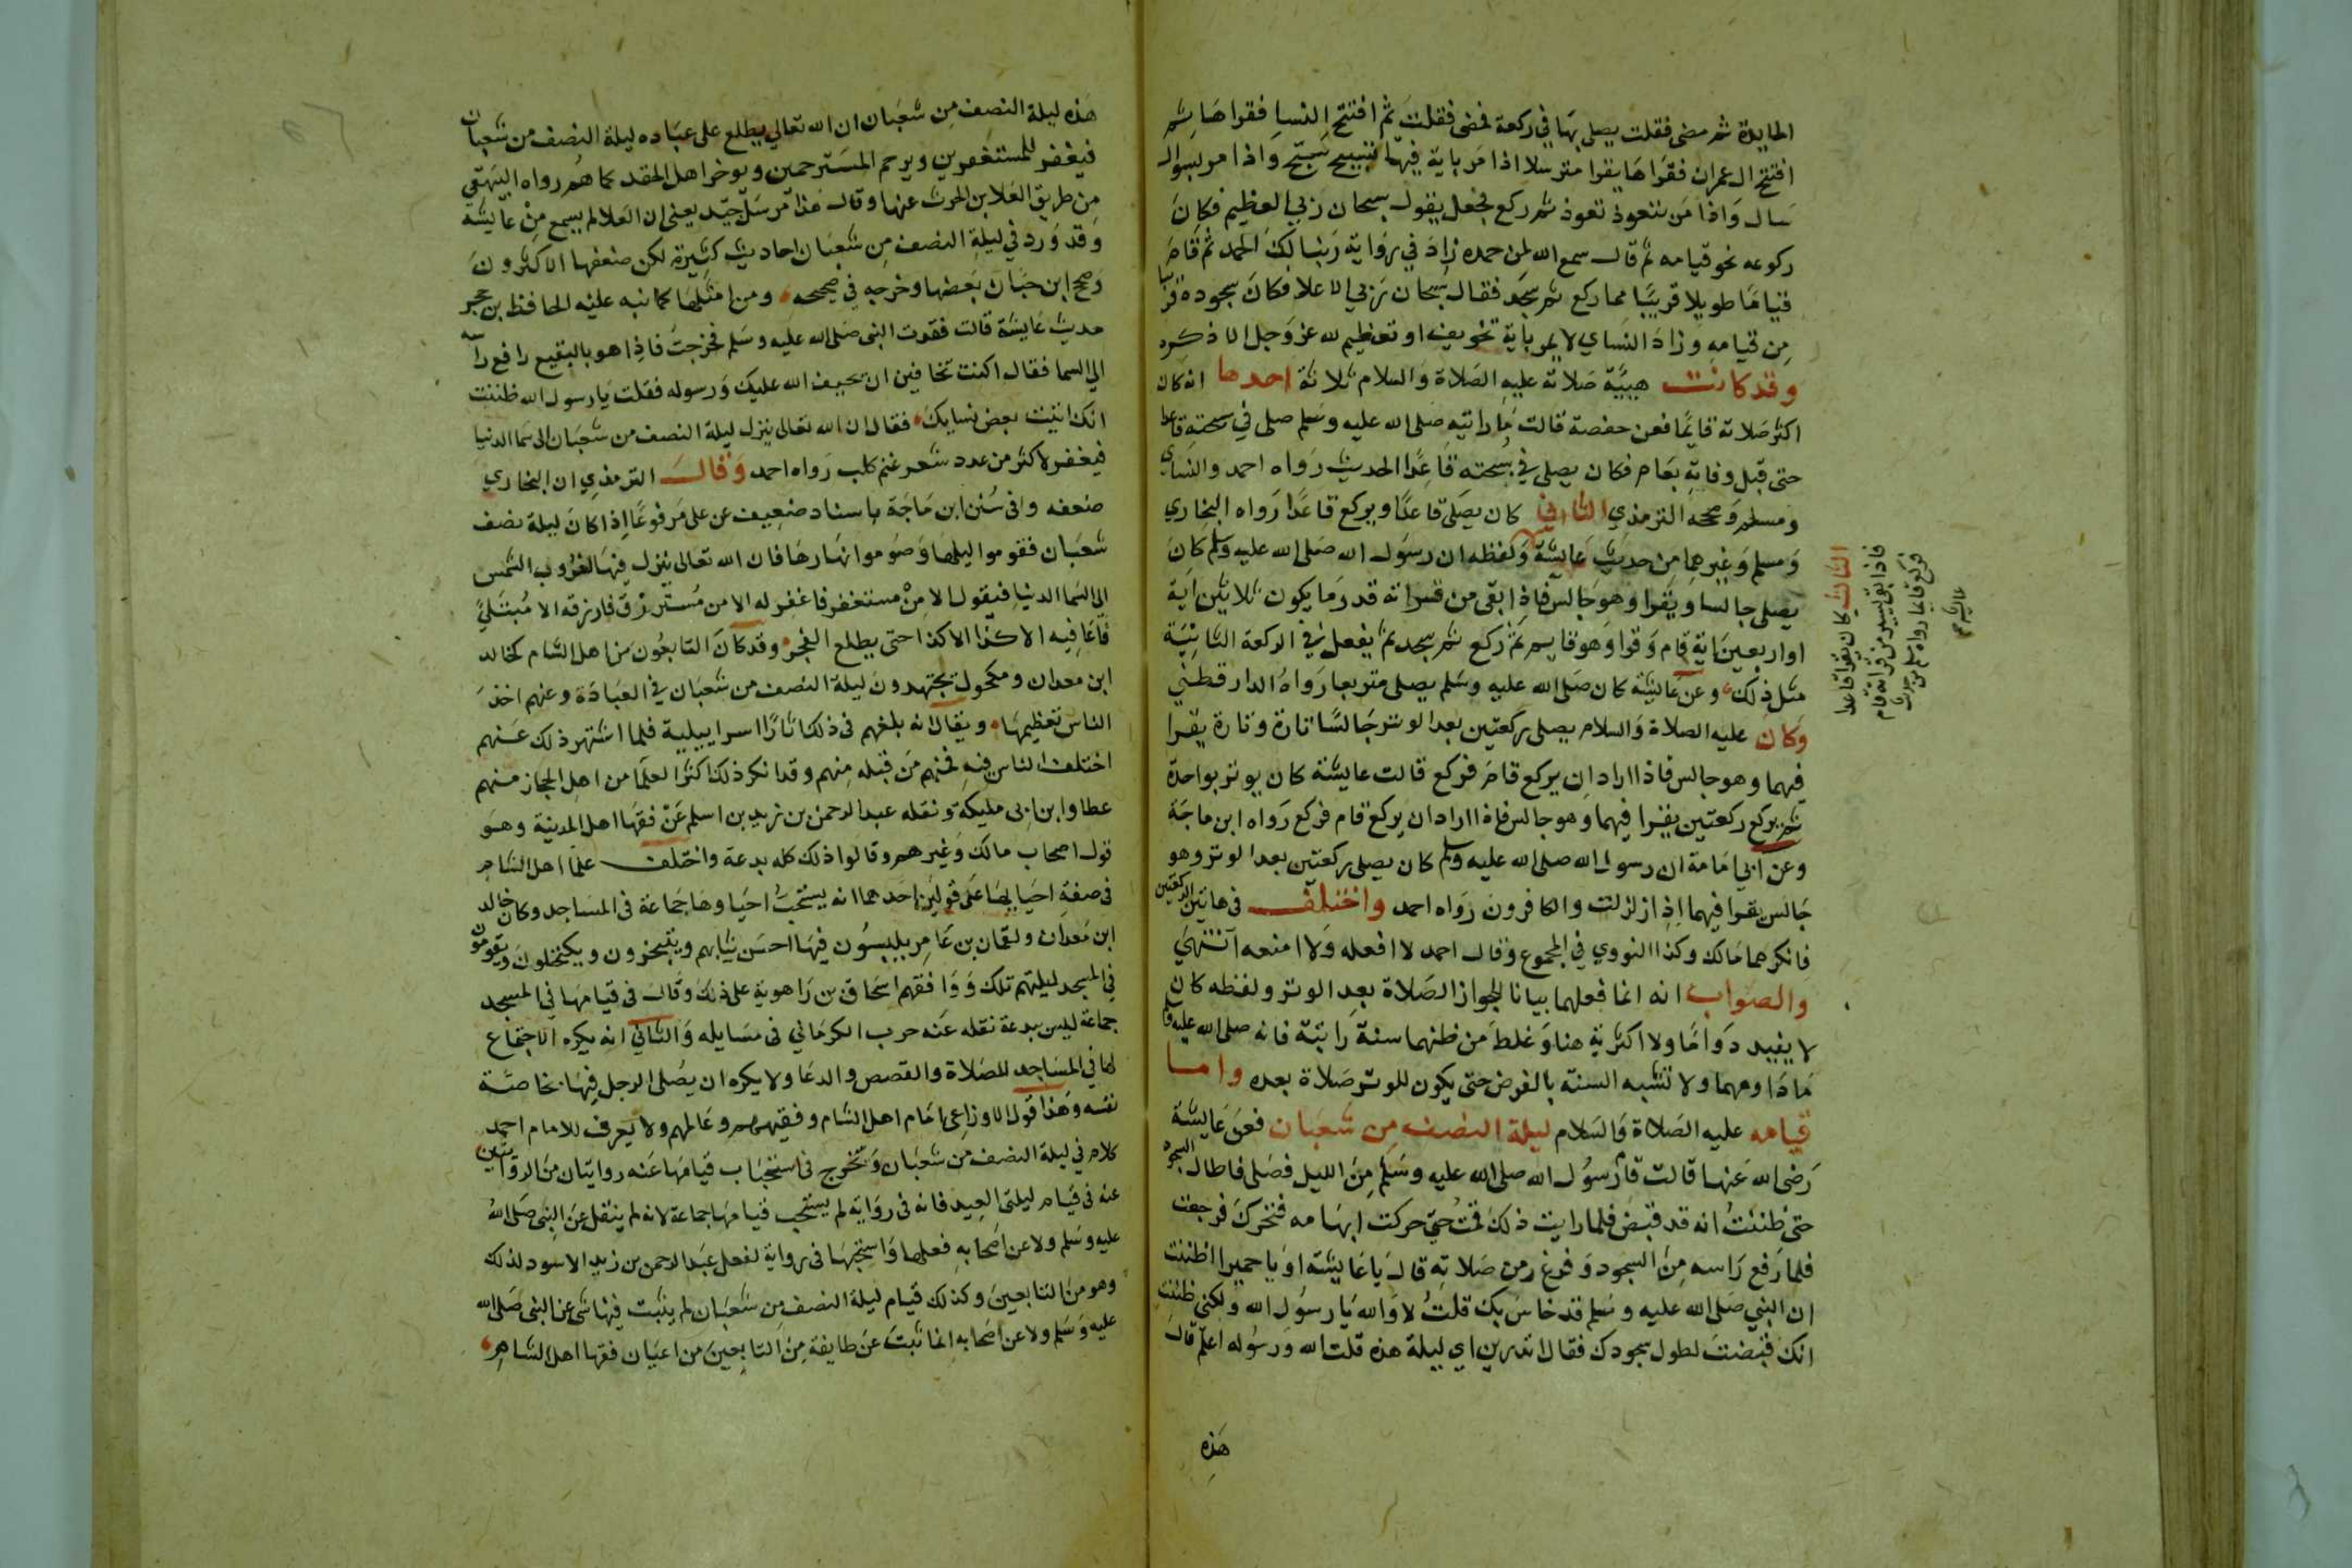 المايدة ثم مضى فقلت يصلي بها في ركعة فمضى فقلت ثم افتتح النسا فقراها ثم
افتتح ال عمران فقراها يقرا مترسلا اذا مر باية فيها تسبيح سبح واذا مر بسوال
سال واذا مر بتعوذ تعوذ ثم ركع فجعل يقول سبحان ربي العظيم فكان
ركوعه نحو قيامه ثم قال سمع الله لمن حمده زاد في رواية ربنا لك الحمد ثم قام
قياما طويلا قريبا مما ركع ثم سجد فقال سبحان ربي الاعلا فكان سجوده قريبا
من قيامه وزاد النساي لا يمر باية تخويف او تعظيم لله عز وجل الا ذكره
وقد كانت هيية صلاته عليه الصلاة والسلام ثلاثة احدها انه كان
اكثر صلاته قايما فعن حفصة قالت ما رايته صلى الله عليه وسلم صلى في سبحته قاعدا
حتى قبل وفاته بعام فكان يصلي في سبحته قاعدا الحديث رواه احمد والنساي
ومسلم وصححه الترمذي الثاني كان يصلي قاعدا ويركع قاعدا رواه البخاري
ومسلم وغيرهما من حديث عايشة ولفظه ان رسول الله صلى الله عليه وسلم كان
يصلي جالسا ويقرا وهو جالس فاذا بقى من قراته قدر ما يكون ثلاثين اية
او اربعين اية قام وقرا وهو قايم ثم ركع ثم سجد ثم يفعل في الركعة الثانية
مثل ذلك وعن عايشة كان صلى الله عليه وسلم يصلي متربعا رواه الدارقطني
وكان عليه الصلاة والسلام يصلي ركعتين بعد الوتر جالسا تارة وتارة يقرا
فيهما وهو جالس فاذا اراد ان يركع قام فركع قالت عايشة كان يوتر بواحدة
ثم يركع ركعتين يقرا فيهما وهو جالس فاذا اراد ان يركع قام فركع رواه ابن ماجة
وعن ابي امامة ان رسول الله صلى الله عليه وسلم كان يصلي ركعتين بعد الوتر وهو
جالس يقرا فيهما اذا زلزلت والكافرون رواه احمد واختلف في هاتين الركعتين
فانكرهما مالك وكذا النووي في المجموع وقال احمد لا افعله ولا امنعه انتهى
والصواب انه انما فعلهما بيانا لجواز الصلاة بعد الوتر ولفظه كان
لا يفيد دواما ولا اكثرية هنا وغلط من ظنهما سنة راتبة فانه صلى الله عليه وسلم
ما داومهما ولا تشبه السنة بالفرض حتى يكون للوتر صلاة بعده واما
قيامه عليه الصلاة والسلام ليلة النصف من شعبان فعن عايشة
رضى الله عنها قالت قام رسول الله صلى الله عليه وسلم من الليل فصلى فاطال السجود
حتى ظننت انه قد قبض فلما رايت ذلك قمت حتى حركت ابهامه فتحرك فرجعت
فلما رفع راسه من السجود وفرغ من صلاته قال يا عايشة او يا حميرا اظننت
ان النبي صلى الله عليه وسلم قد خاس بك قلت لا والله يا رسول الله ولكني ظننت
انك قبضت لطول سجودك فقال اتدرين اي ليلة هذه قلت الله ورسوله اعلم قال
هذه
الثالث كان يقرا قاعدا
فاذا بقى يسير من قراته قام
فركع قايما رواه مسلم من حديث
عايشة
هذه ليلة النصف من شعبان ان الله تعالى يطلع على عباده ليلة النصف من شعبان
فيغفر للمستغفرين ويرحم المسترحمين ويوخر اهل الحقد كما هم رواه البيهقي
من طريق العلا بن الحرث عنها وقال هذا مرسل جيد يعني ان العلا لم يسمع من عايشة
وقد ورد في ليلة النصف من شعبان احاديث كثيرة لكن ضعفها الاكثرون
وصحح ابن حبان بعضها وخرجه في صحيحه ومن امثلها كما نبه عليه الحافظ بن حجر
حديث عايشة قالت فقدت النبي صلى الله عليه وسلم فخرجت فاذا هو بالبقيع رافع راسه
الى السما فقال اكنت تخافين ان يحيف الله عليك ورسوله فقلت يا رسول الله ظننت
انك اتيت بعض نسايك فقال ان الله تعالى ينزل ليلة النصف من شعبان الى سما الدنيا
فيغفر لاكثر من عدد شعر غنم كلب رواه احمد وقال الترمذي ان البخاري
ضعفه وفي سنن ابن ماجة باسناد ضعيف عن علي مرفوعا اذا كان ليلة نصف
شعبان فقوموا ليلها وصوموا نهارها فان الله تعالى ينزل فيها لغروب الشمس
الى السما الدنيا فيقول الا من مستغفر فاغفر له الا من مسترزق فارزقه الا مبتلي
فاعافيه الا كذا الا كذا حتى يطلع الفجر وقد كان التابعون من اهل الشام كخالد
ابن معدان ومكحول يجتهدون ليلة النصف من شعبان في العبادة وعنهم اخذ
الناس تعظيمها ويقال انه بلغهم في ذلك اثارا اسراييلية فلما اشتهر ذلك عنهم
اختلف الناس فيه فمنهم من قبله منهم وقد انكر ذلك اكثر العلما من اهل الحجاز منهم
عطا وابن ابي مليكة ونقله عبد الرحمن بن زيد بن اسلم عن فقها اهل المدينة وهو
قول اصحاب مالك وغيرهم وقالوا ذلك كله بدعة واختلف علما اهل الشام
في صفة احيايها على قولين احدهما انه يستحب احياوها جماعة في المساجد وكان خالد
ابن معدان ولقمان بن عامر يلبسون فيها احسن ثيابهم ويتبخرون ويكتحلون ويقومون
في المسجد ليلتهم تلك ووافقهم اسحاق بن راهوية على ذلك وقال في قيامها في المسجد
جماعة ليس ببدعة نقله عنه حرب الكرماني في مسايله والثاني انه يكره الاجتماع
لها في المساجد للصلاة والقصص والدعا ولا يكره ان يصلى الرجل فيها بخاصة
نفسه وهذا قول الاوزاعي امام اهل الشام وفقيههم وعالمهم ولا يعرف للامام احمد
كلام في ليلة النصف من شعبان وتخرج في استحباب قيامها عنه روايتان من الروايتين
عنه في قيام ليلتي العيد فانه في رواية لم يستحب قيامها جماعة لانه لم ينقل عن النبي صلى الله
عليه وسلم ولا عن اصحابه فعلها واستحبها في رواية لفعل عبد الرحمن بن زيد الاسود لذلك
وهو من التابعين وكذلك قيام ليلة النصف من شعبان لم يثبت فيها شي عن النبي صلى الله
عليه وسلم ولا عن اصحابه انما ثبت عن طايفة من التابعين من اعيان فقها اهل الشام